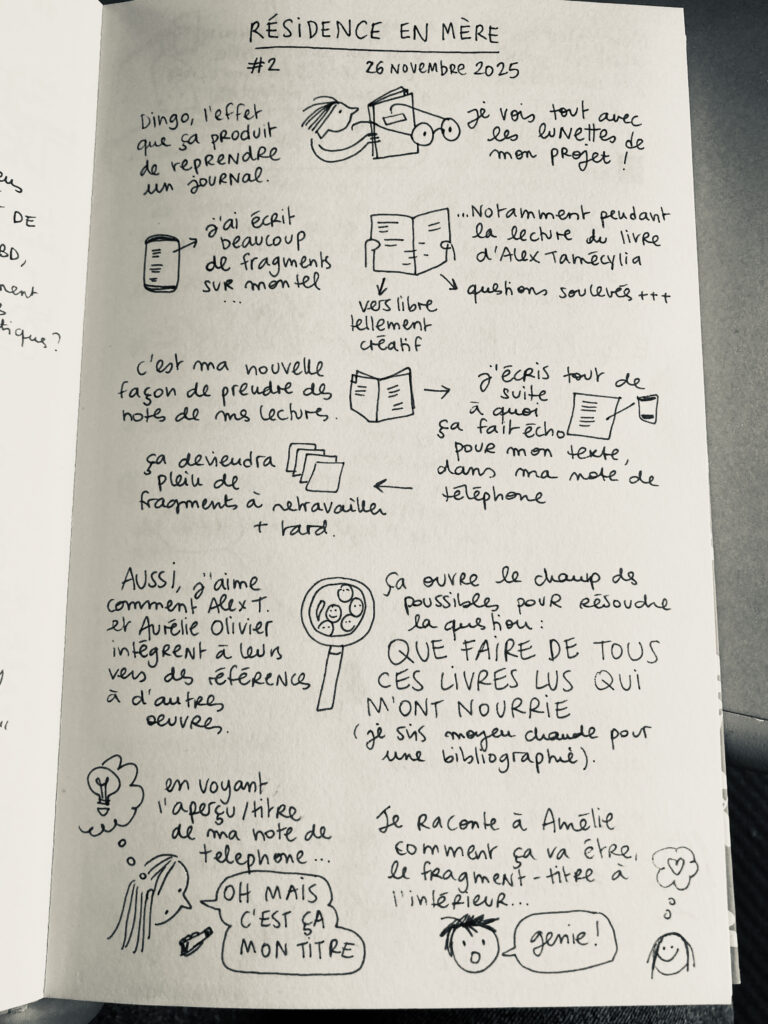 RÉSIDENCE EN MÈRE
#2 26 NOVEMBRE 2025
Dingo, l'effet
que ça produit
de reprendre
un journal.
je vois tout avec
les lunettes de
mon projet !
j'ai écrit
beaucoup
de fragments
sur mon tel
...
...Notamment pendant
la lecture du livre
d'Alex Tamécylia
vers libre
tellement
créatif
questions soulevés +++
c'est ma nouvelle
façon de prendre des
notes de mes lectures.
j'écris tout de
suite
à quoi
ça fait écho
pour mon texte,
dans ma note de
téléphone
ça deviendra
plein de
fragments à retravailler
+ tard.
AUSSI, j'aime
comment Alex T.
et Aurélie Olivier
intègrent à leurs
vers des références
à d'autres
oeuvres.
ça ouvre le champ des
poussibles pour résoudre
la question :
QUE FAIRE DE TOUS
CES LIVRES LUS QUI
M'ONT NOURRIE
(je suis moyen chaude pour
une bibliographie).
en voyant
l'aperçu/titre
de ma note de
telephone...
OH MAIS
C'EST ÇA
MON TITRE
Je raconte à Amélie
comment ça va être,
le fragment-titre à
l'intérieur...
génie !
DE
BD,
tique ?